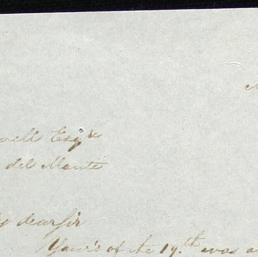 Esqr
del Monte
dear sir
Yours of the 19th was